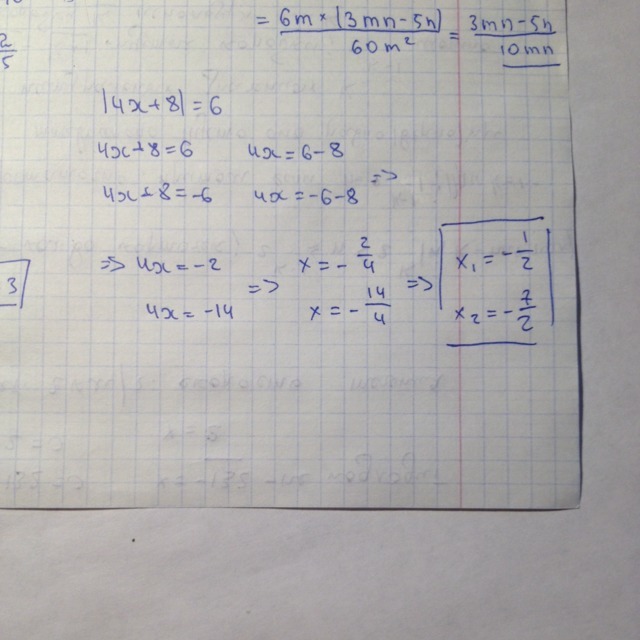 = 6m × (3mn-5n) / 60m² = 3mn-5n / 10mn
2/5
|4x+8| = 6
4x+8=6 4x=6-8
4x+8=-6 4x=-6-8 =>
=> 4x=-2 => x=-2/4 => x₁=-1/2
4x=-14 x=-14/4 x₂=-7/2
3